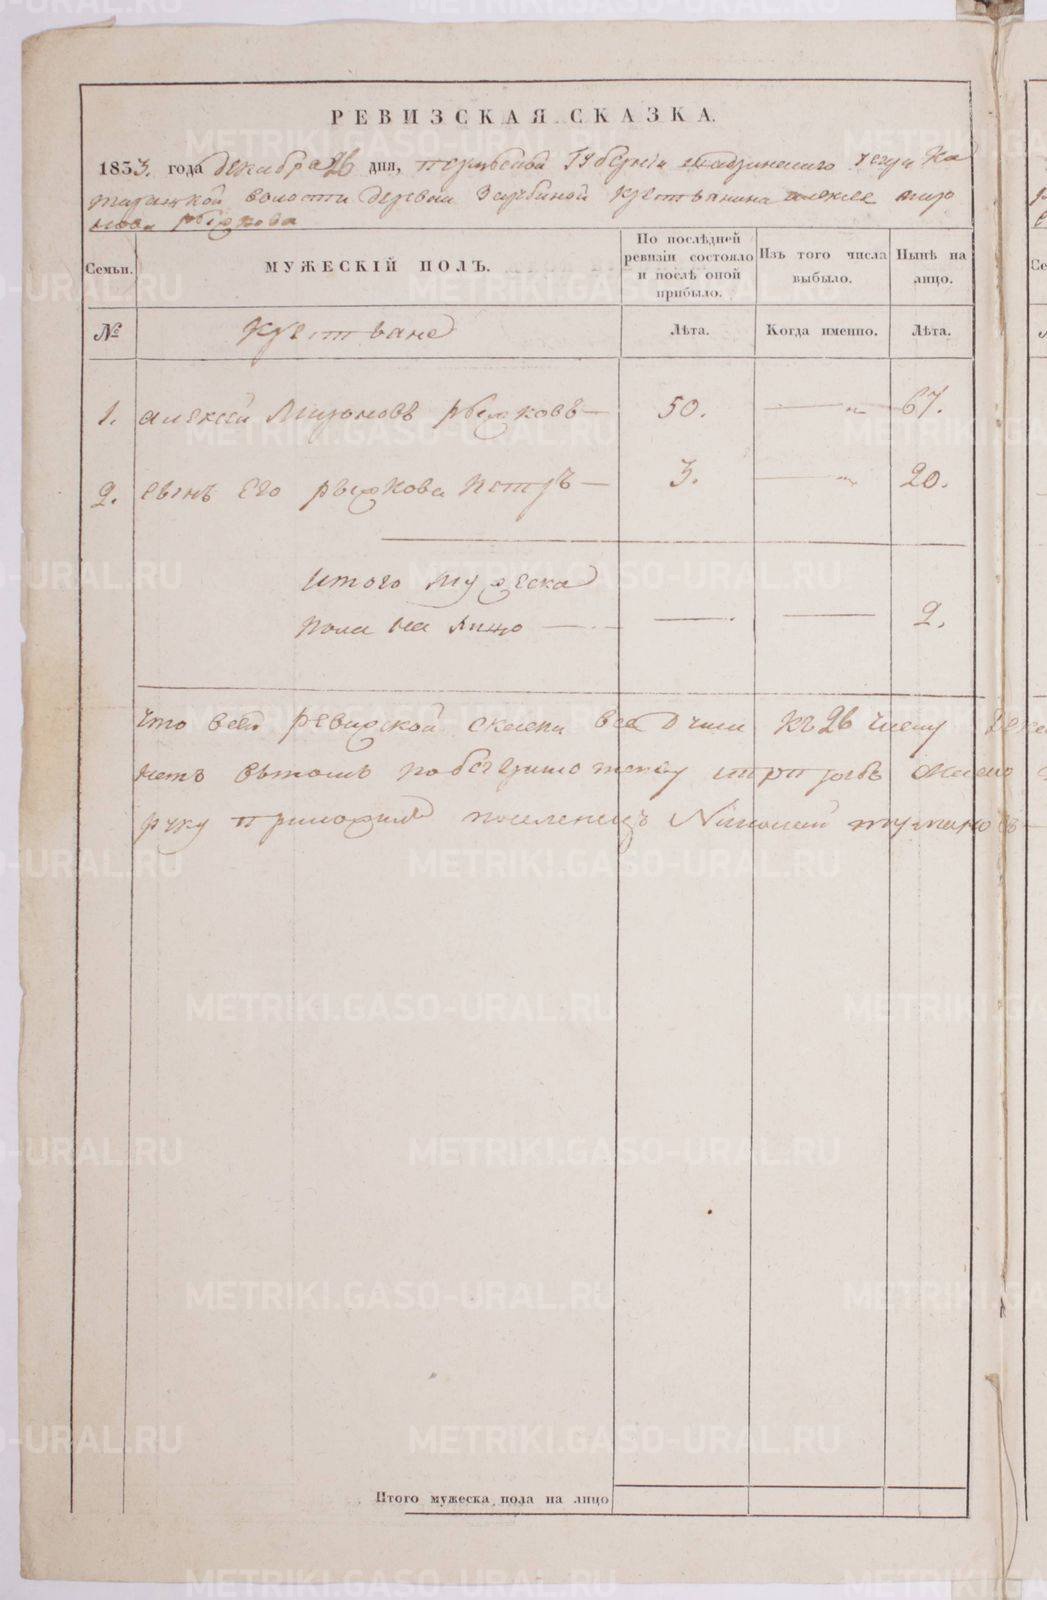 РЕВИЗСКАЯ СКАЗКА.
1833. года декабря 26 дня, пермской Губернии екатиринского уезда Ка
волости деревни Зарубиной крестьянина алексея миро
нова рыжкова
Семьи. МУЖЕСКІЙ ПОЛЪ. По послѣдней ревизіи состояло и послѣ оной прибыло. Изъ того числа выбыло. Нынѣ на лицо.
№ крестьяне Лѣта. Когда именно. Лѣта.
1. алексей Мироновъ рыжковъ — 50. — „ — 67.
2. сынъ Его рыжкова петръ — 3. — „ 20.
итого мужеска
пола на лицо — — — 2.
что всей ревижской скаски все Dчши къ 26 числу
нетъ вътомъ по
руку приложилъ поселенецъ Николай
Итого мужеска пола на лицо
METRIKI.GASO-URAL.RU